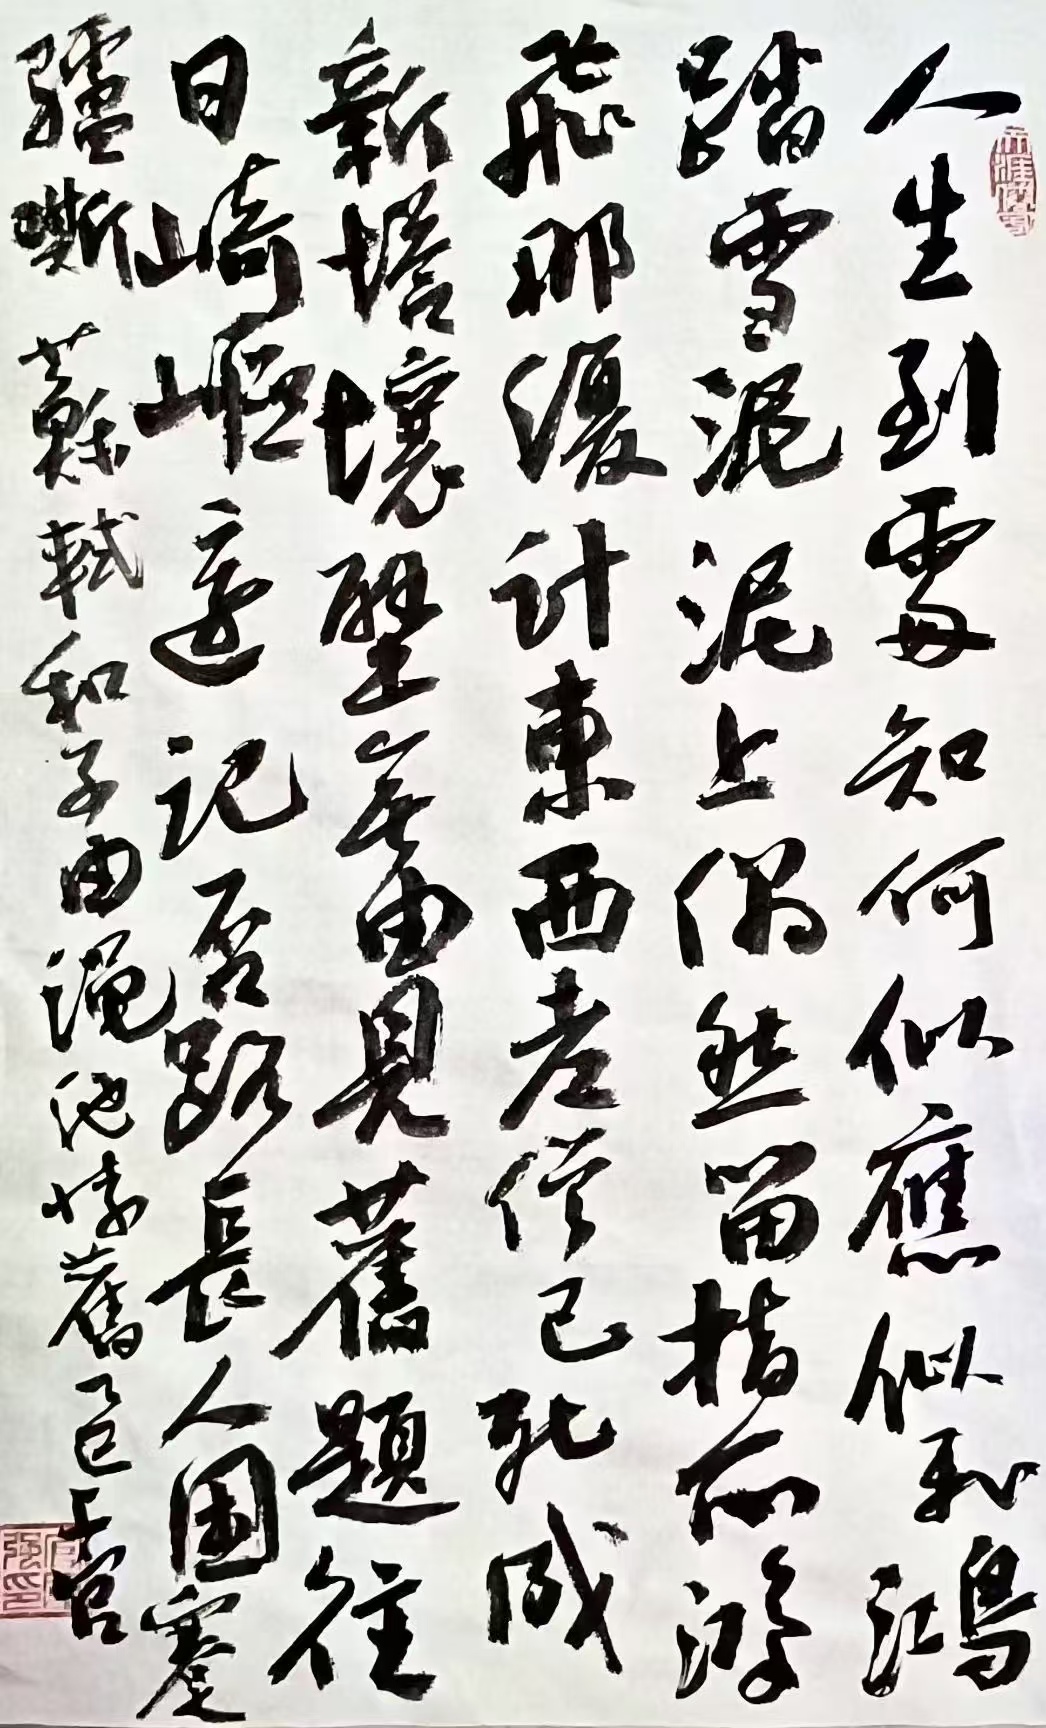 人生到處知何似應似飛鴻
踏雪泥泥上偶然留指爪鴻
飛那復計東西老僧已死成
新塔壞壁無由見舊題往
日崎嶇還記否路長人困蹇
驢嘶 蘇軾和子由澠池懷舊乙巳